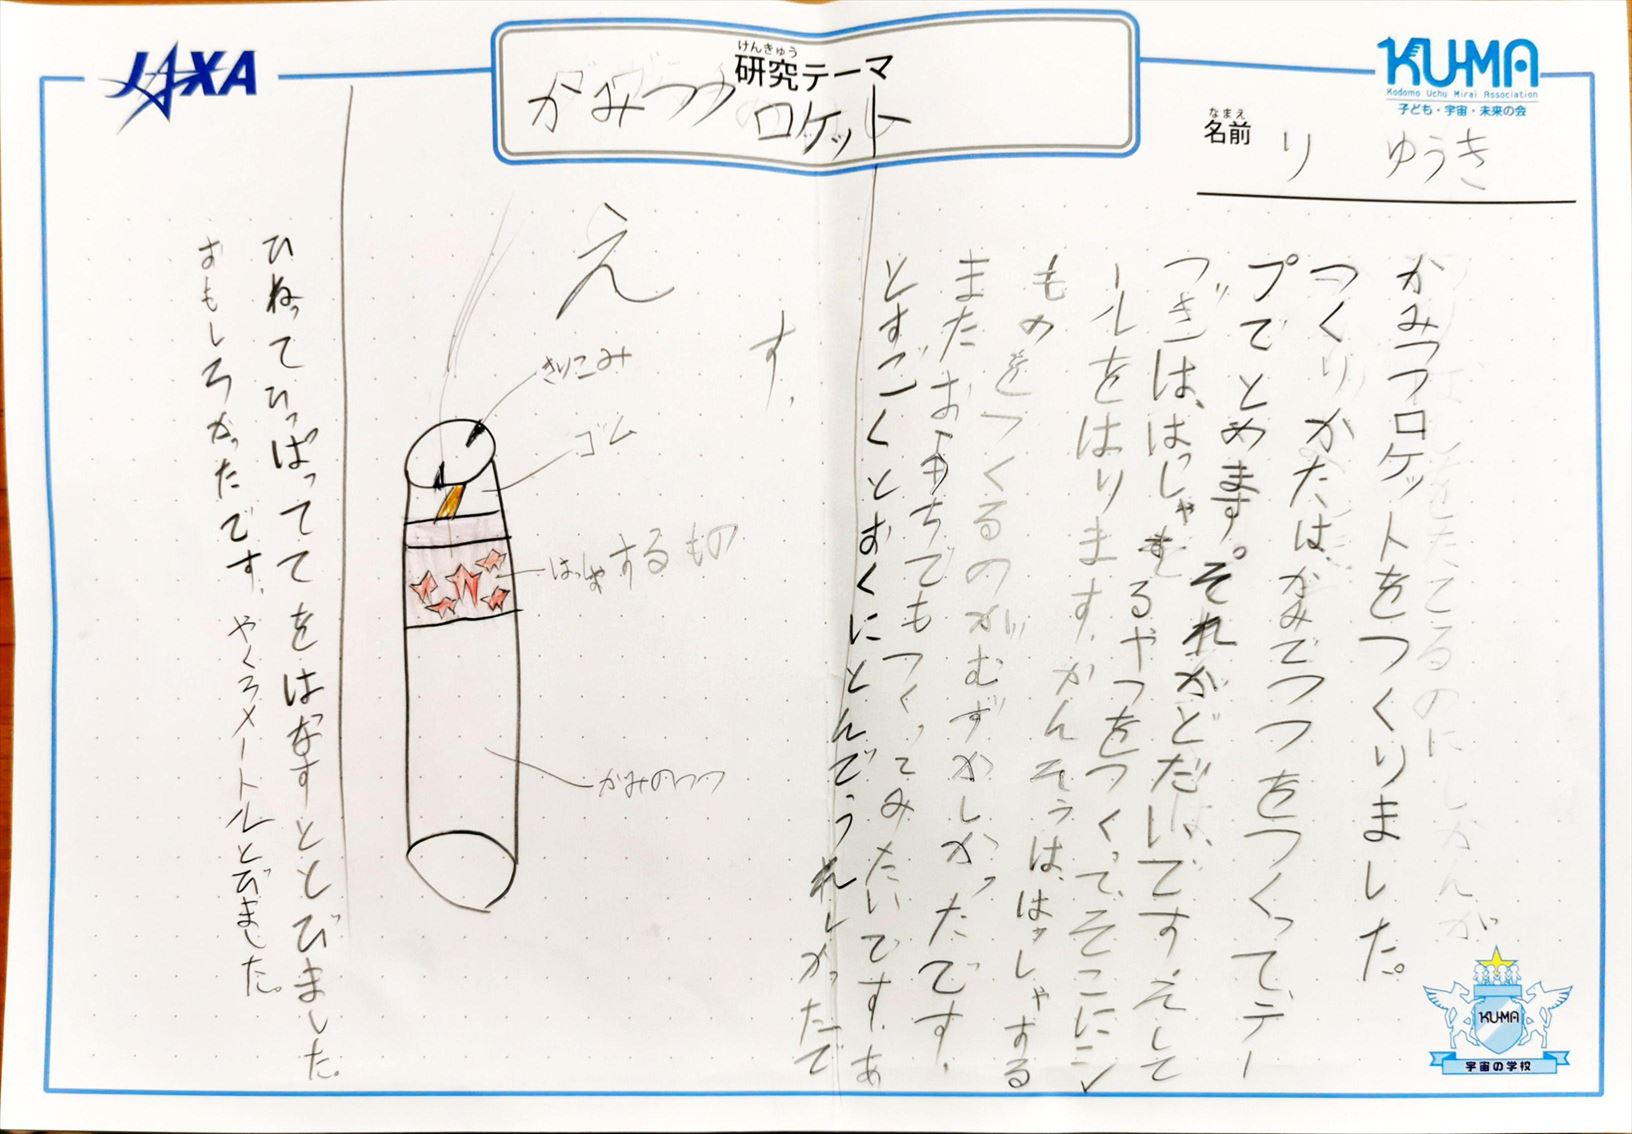 JAXA
けんきゅう
研究テーマ
かみつつ
ロケット
KU-MA
Kodomo Uchu Mirai Association
子ども・宇宙・未来の会
なまえ
名前 り ゆうき
かみつつロケットをつくりました。
つくりかたは、かみでつつをつくって、テー
プでとめます。それがどだいです そして
つぎは、はっしゃするやつをつくって、そこにシ
ールをはります。かんそうは、はっしゃする
ものをつくるのがむずかしかったです。
またおもちでもつくってみたいです。あ
とすごくとおくにとんでうれしかったで
す。
え
きりこみ
ゴム
はっしゃするもの
かみのつつ
ひねってひっぱっててをはなすととびました。
おもしろかったです。やくろメートルとびました。
KU-MA
宇宙の学校